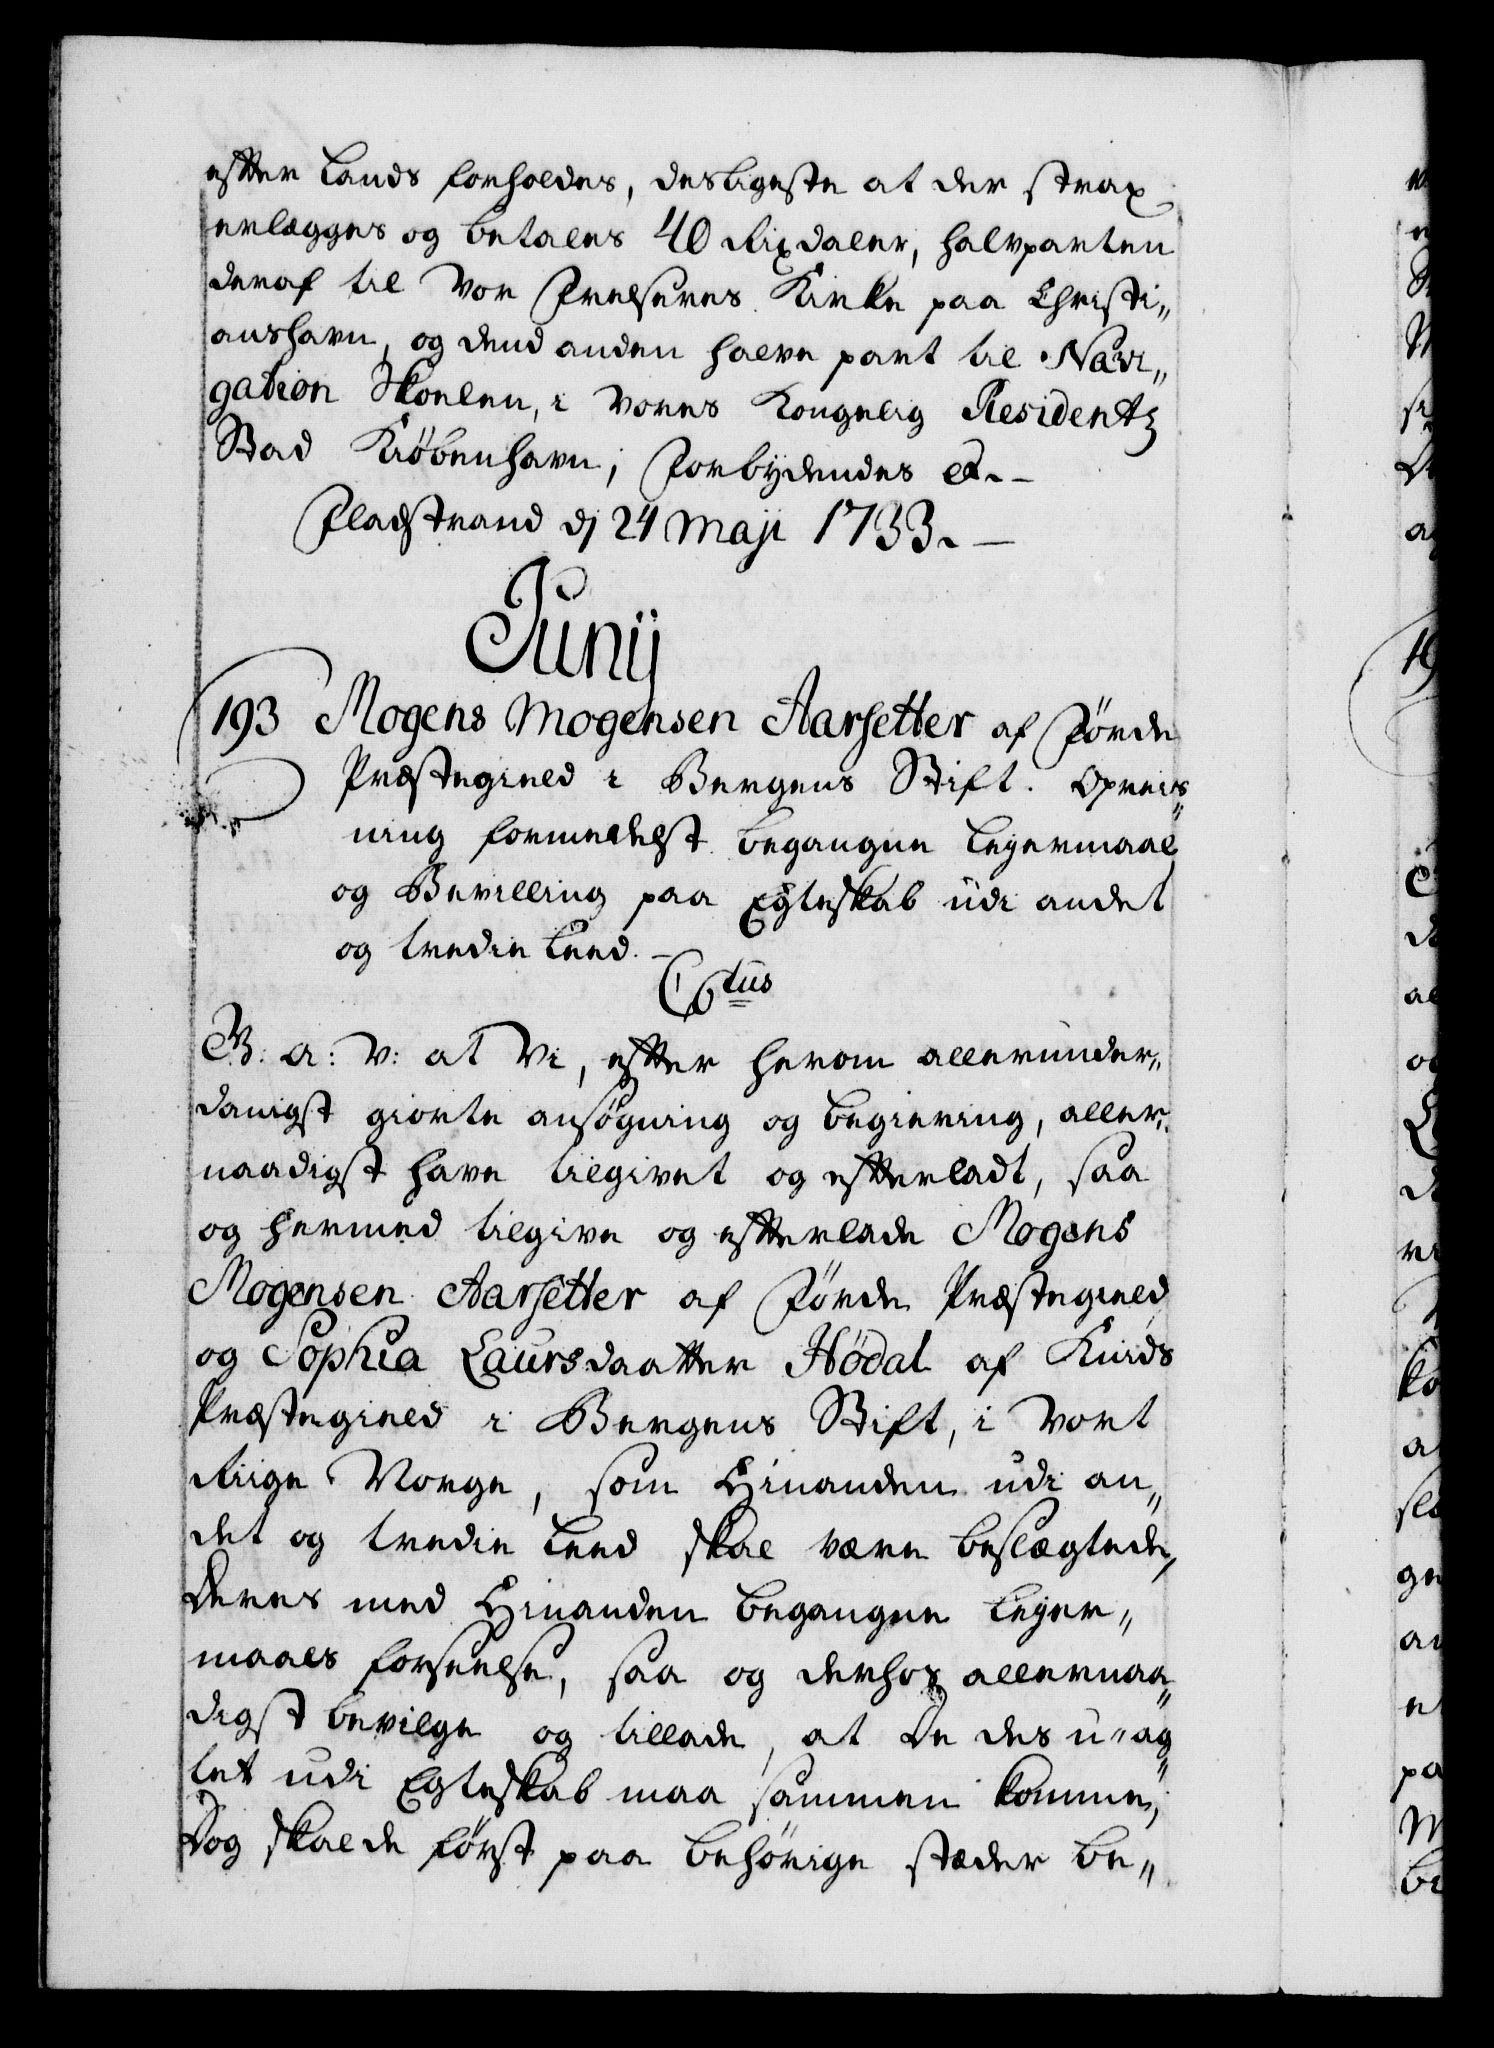 efter Lands forholdes, desligeste at der strax
erlægges og betales 40 Rixdaler, halvparten
deraf til Vor Frelseres Kirke paa Christi„
anshavn, og dend anden halve part til Navi„
gation Skoelen, i Vores Kongelig Residentz
Stad Kiøbenhavn; Forbydendes &.
Fladstrand dj 24 Maji 1733.
Junij
193 Mogens Mogensen Aarsetter af Førde
Præstegield i Bergens Stift. Opreis„
ning formedelst begangne Lejermaal
og Bevilling paa Egteskab udi andet
og tredie Leed.
C6tus
G: a: V: at Vi, efter herom allerunder„
danigst giorte ansøgning og begiering, aller„
naadigst have tilgivet og efterladt, saa
og hermed tilgive og efterlade Mogens
Mogensen Aarsetter af Førde Præstegield
og Sophia Laursdaatter Hödal af Kinds
Præstegield i Bergens Stift, i Vort
Riige Norge, som Hinanden udi an„
det og tredie Leed skal være beslægtede,
Deres med Hinanden begangne Lejer„
maals forseelse, saa og derhos allernaa„
digst bevilge og tillade, at De des u-ag„
tet udi Egteskab maa sammen komme,
Dog skal de først paa behørige stæder be„